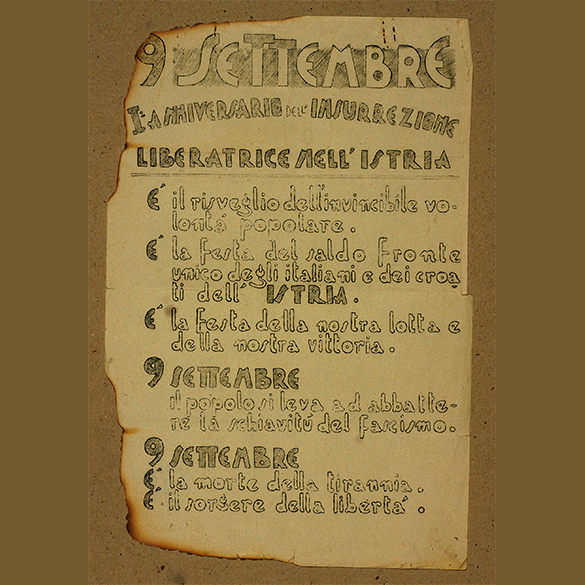 9 SETTEMBRE
I.° ANNIVERSARIO DELL'INSURREZIONE
LIBERATRICE NELL'ISTRIA
É il risveglio dell'invincibile vo-
lontá popolare.
É la festa del saldo fronte
unico degli italiani e dei croa
ti dell' ISTRIA.
É la festa della nostra lotta e
della nostra vittoria.
9 SETTEMBRE
il popolo si leva ad abbatte-
re la schiavitú del fascismo.
9 SETTEMBRE
É la morte della tirannia.
É il sorgere della libertá.